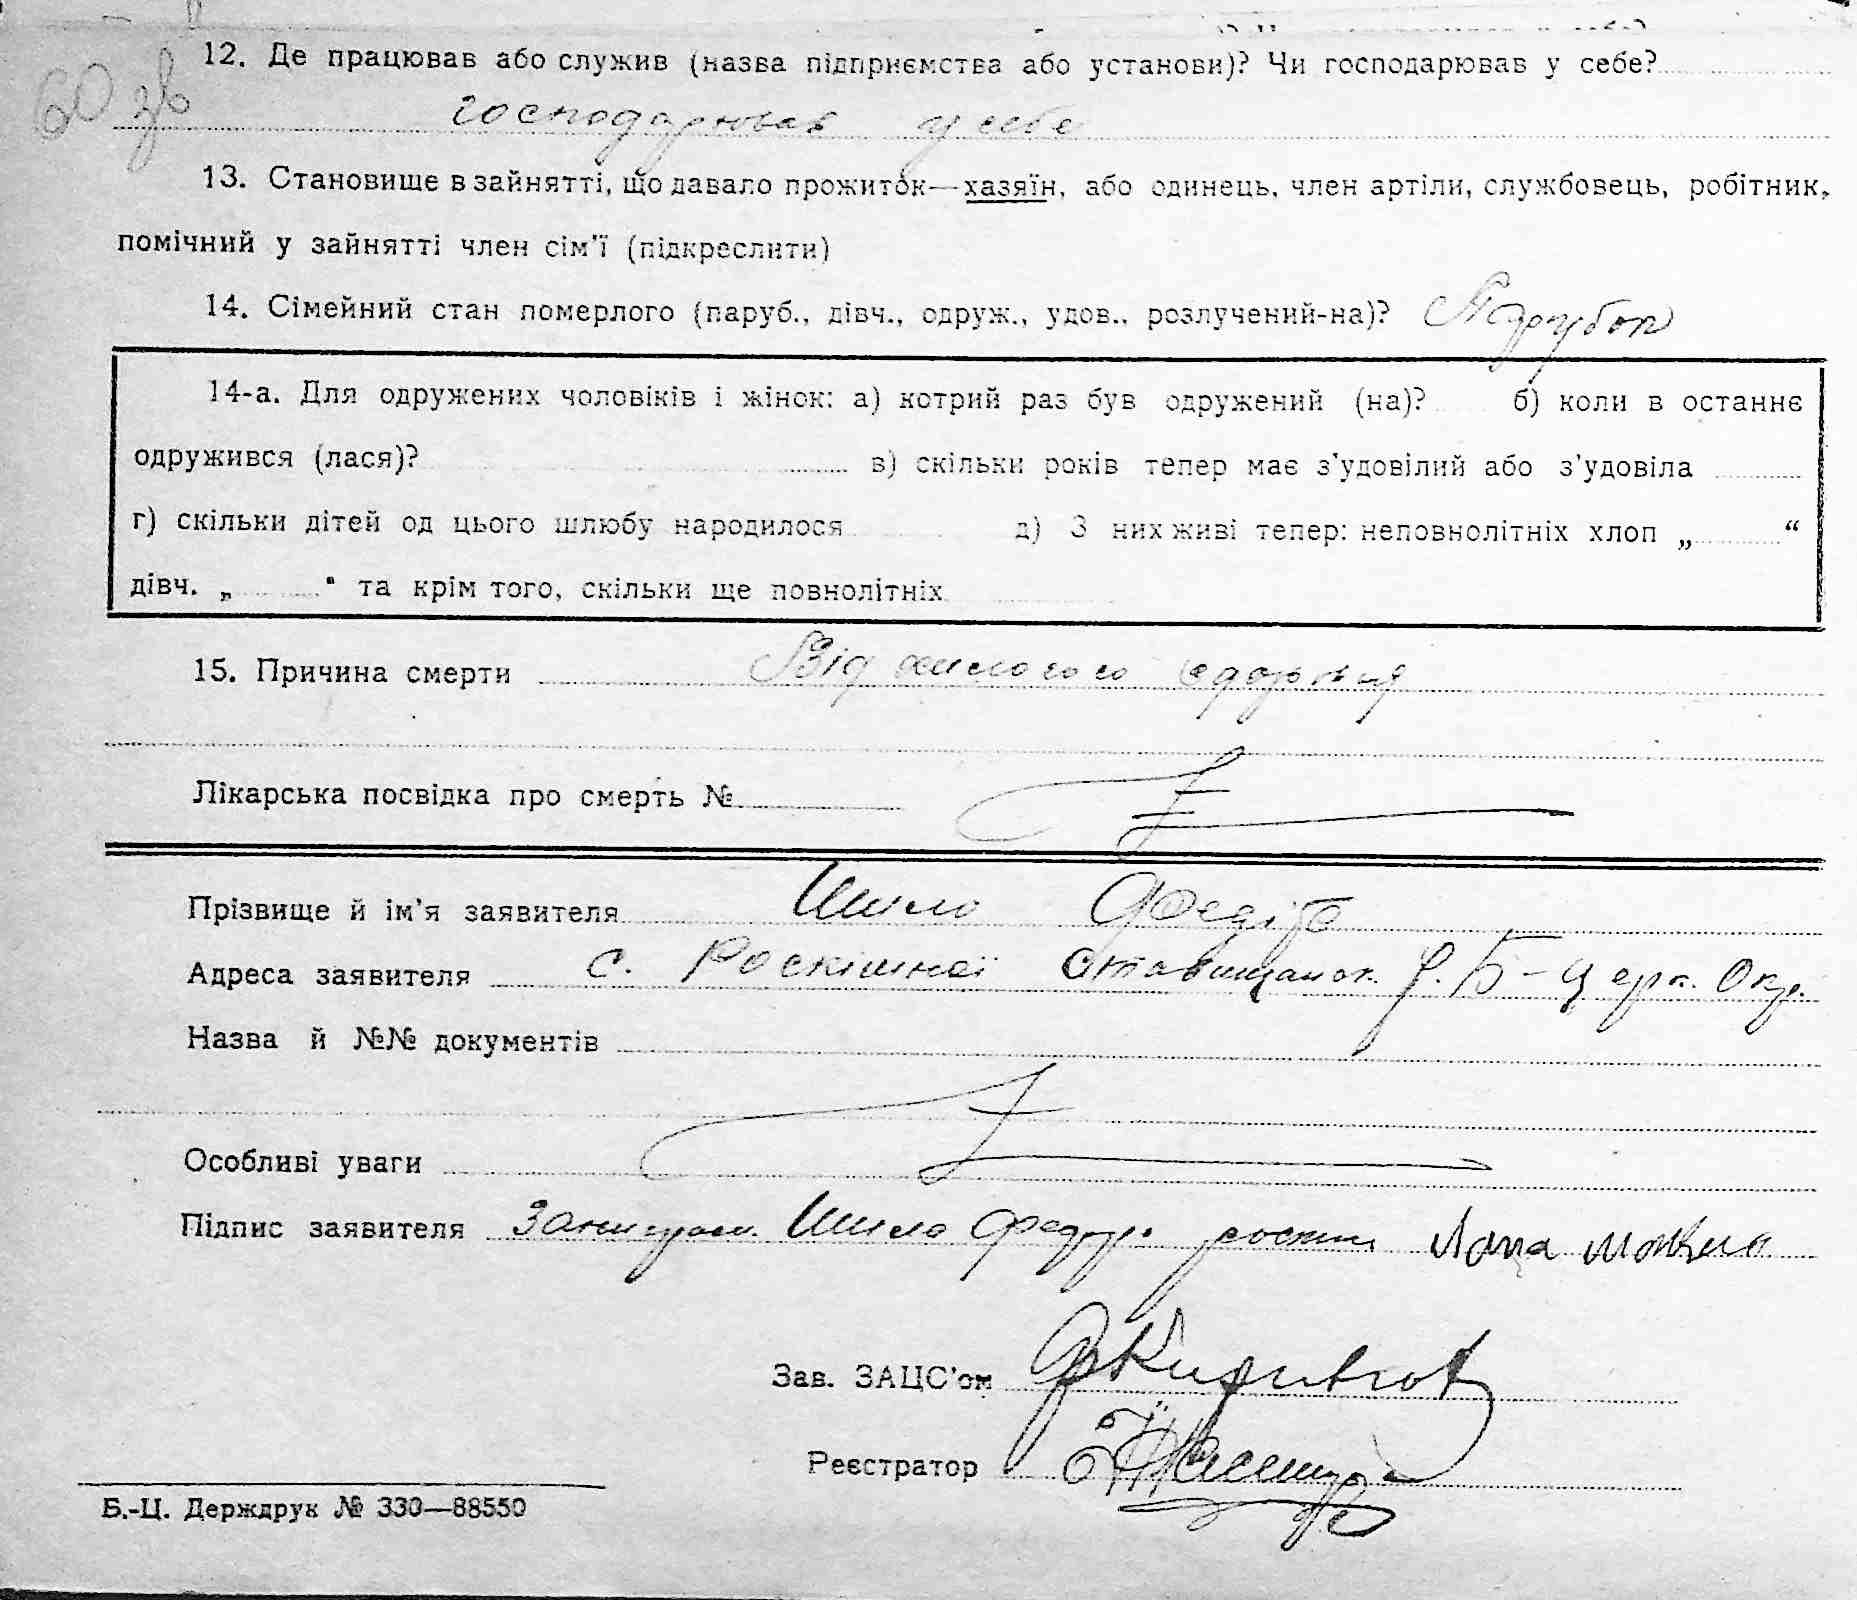 60 зв
12. Де працював або служив (назва підприємства або установи)? Чи господарював у себе?
господарював у себе
13. Становище в зайнятті, що давало прожиток—хазяїн, або одинець, член артіли, службовець, робітник,
помічний у зайнятті член сім'ї (підкреслити)
14. Сімейний стан померлого (паруб., дівч., одруж., удов., розлучений-на)? Парубок
14-а. Для одружених чоловіків і жінок: а) котрий раз був одружений (на)? б) коли в останнє
одружився (лася)? в) скільки років тепер має з'удовілий або з'удовіла
г) скільки дітей од цього шлюбу народилося д) З них живі тепер: неповнолітніх хлоп „ “
дівч. „ “ та крім того, скільки ще повнолітніх
15. Причина смерти Від хилого здоровця
Лікарська посвідка про смерть №
Прізвище й ім'я заявителя Шило Федір
Адреса заявителя с. Роскішної Ставищанск. р. Б-Церк. Окр.
Назва й №№ документів
Особливі уваги
Підпис заявителя Шило Федір
Зав. ЗАЦС'ом
Реєстратор
Б.-Ц. Держдрук № 330—88550